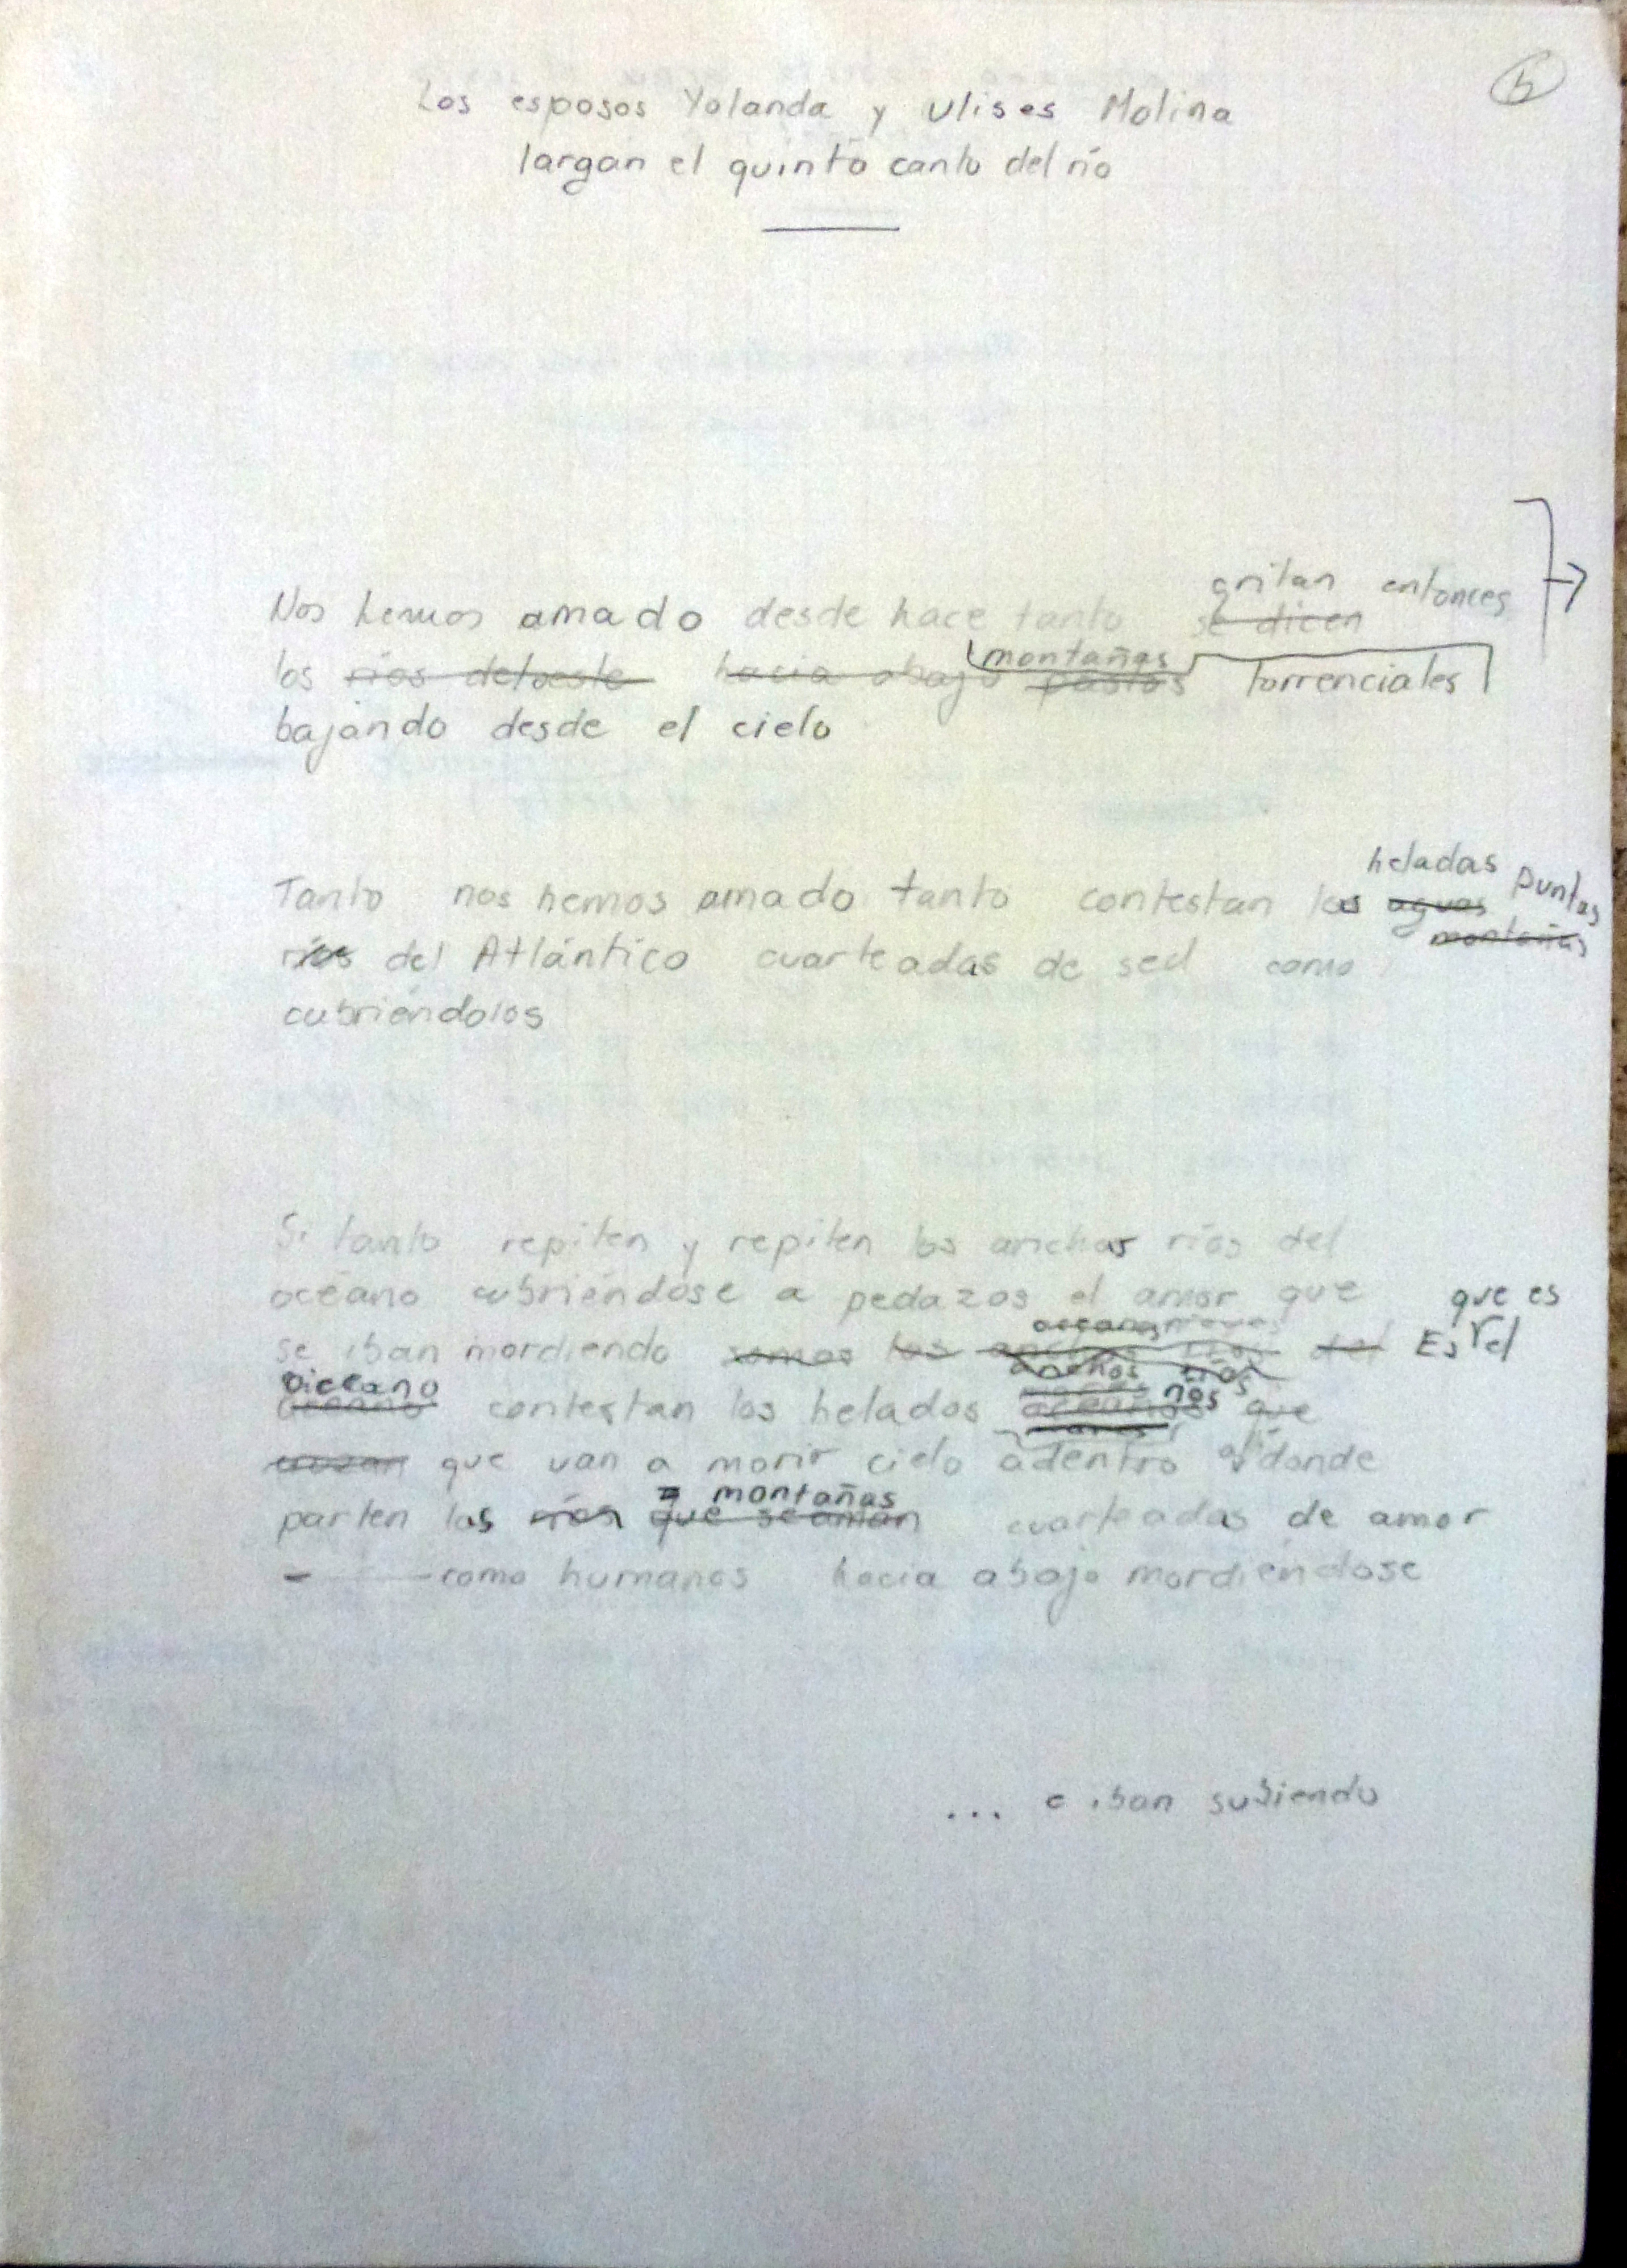 5
Los esposos Yolanda y Ulises Molina
largan el quinto canto del río
gritan entonces
Nos hemos amado desde hace tanto se dicen
montañas
los ríos del oeste hacia abajo pastos torrenciales
bajando desde el cielo
heladas puntas
Tanto nos hemos amado tanto contestan las aguas
montañas
ríos del Atlántico cuarteadas de sed como
cubriéndolos
Si tanto repiten y repiten los anchos ríos del
océano cubriéndose a pedazos el amor que
que es
se iban mordiendo somos los anchos ríos del Es el
anchos ríos
océano contestan los helados ríos que
que van a morir cielo adentro allí donde
montañas
parten las ríos que se aman cuarteadas de amor
como humanos hacia abajo mordiéndose
... e iban subiendo